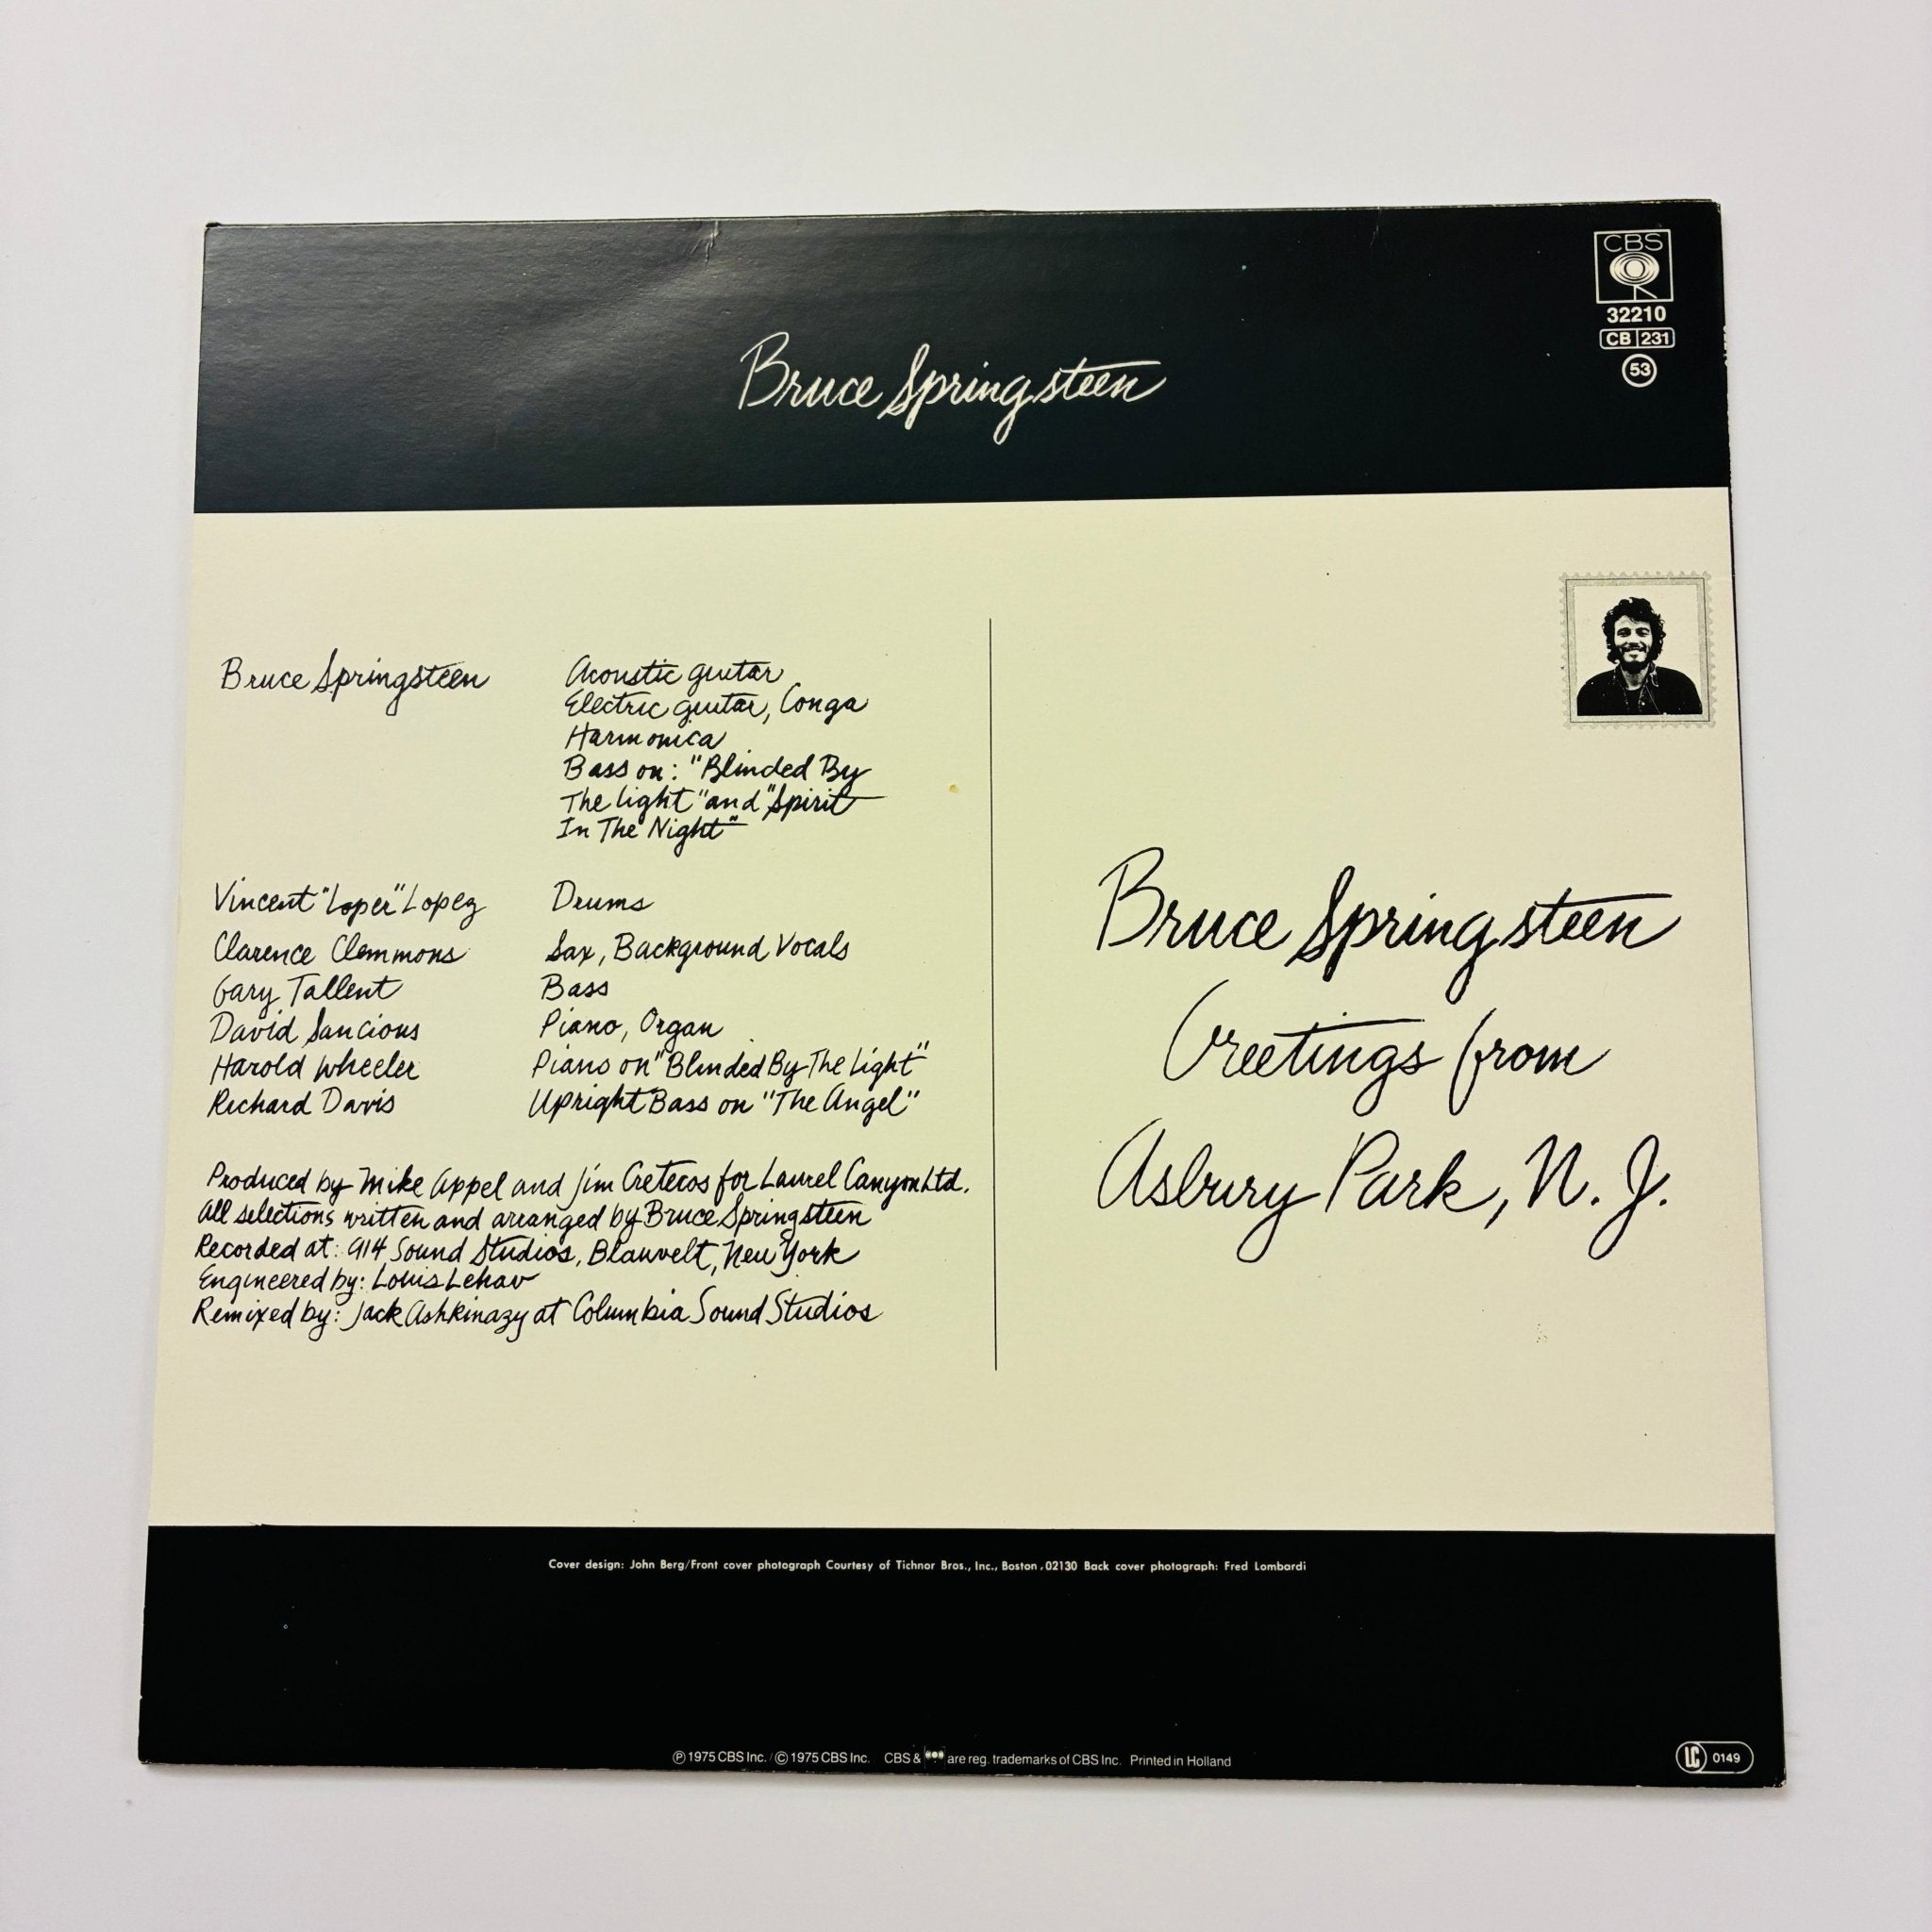 CBS
32210
CB 231
53
Bruce Springsteen
Bruce Springsteen
Acoustic guitar
Electric guitar, Conga
Harmonica
Bass on: "Blinded By
The Light" and "Spirit
In The Night"
Vincent "Loper" Lopez Drums
Clarence Clemmons Sax, Background Vocals
Gary Tallent Bass
David Sancious Piano, Organ
Harold Wheeler Piano on "Blinded By The Light"
Richard Davis Upright Bass on "The Angel"
Produced by Mike Appel and Jim Cretecos for Laurel Canyon Ltd.
All selections written and arranged by Bruce Springsteen
Recorded at: 914 Sound Studios, Blauvelt, New York
Engineered by: Louis Lehav
Remixed by: Jack Ashkinazy at Columbia Sound Studios
Bruce Springsteen
Greetings from
Asbury Park, N. J.
Cover design: John Berg/Front cover photograph Courtesy of Tichnor Bros., Inc., Boston, 02130 Back cover photograph: Fred Lombardi
℗ 1975 CBS Inc. / © 1975 CBS Inc. CBS & are reg. trademarks of CBS Inc. Printed in Holland
LC 0149